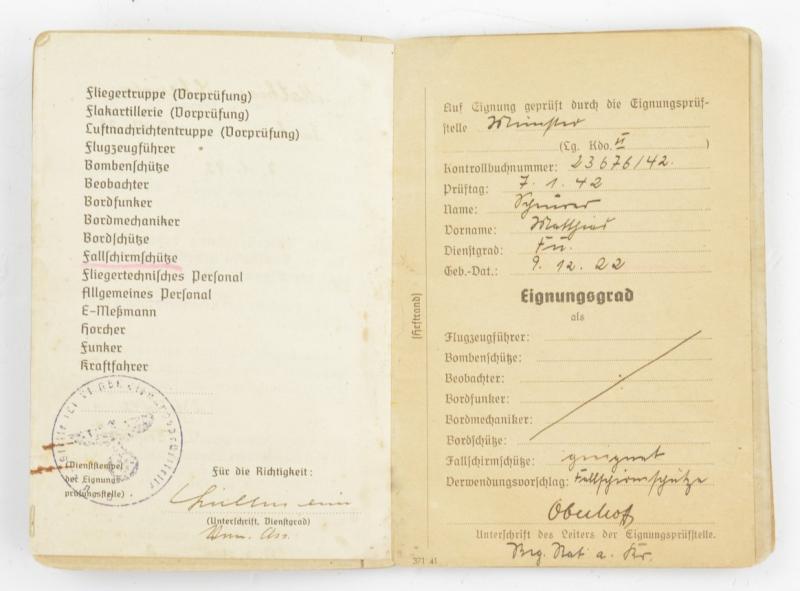 Fliegertruppe (Vorprüfung)
Flakartillerie (Vorprüfung)
Luftnachrichtentruppe (Vorprüfung)
Flugzeugführer
Bombenschütze
Beobachter
Bordfunker
Bordmechaniker
Bordschütze
Fallschirmschütze
Fliegertechnisches Personal
Allgemeines Personal
E-Meßmann
Horcher
Funker
Kraftfahrer
(Dienststempel
der Eignungs-
prüfungsstelle)
Für die Richtigkeit:
(Unterschrift, Dienstgrad)
Auf Eignung geprüft durch die Eignungsprüf-
stelle Münster
(Lg. Kdo. VI )
Kontrollbuchnummer: 23676/42.
Prüftag: 7. 1. 42
Name:
Vorname: Matthias
Dienstgrad:
Geb.-Dat.: 9. 12. 22
(Heftrand)
Eignungsgrad
als
Flugzeugführer:
Bombenschütze:
Beobachter:
Bordfunker:
Bordmechaniker:
Bordschütze:
Fallschirmschütze: geeignet
Verwendungsvorschlag: Fallschirmschütze
Oberhoff
Unterschrift des Leiters der Eignungsprüfstelle.
Reg. Rat a. Kr.
371 41